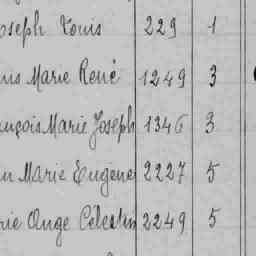 oseph Louis 229 1
uis Marie René 1249 3
nçois Marie Joseph 1346 3
n Marie Eugène 2227 5
rie Ange Célestin 2249 5